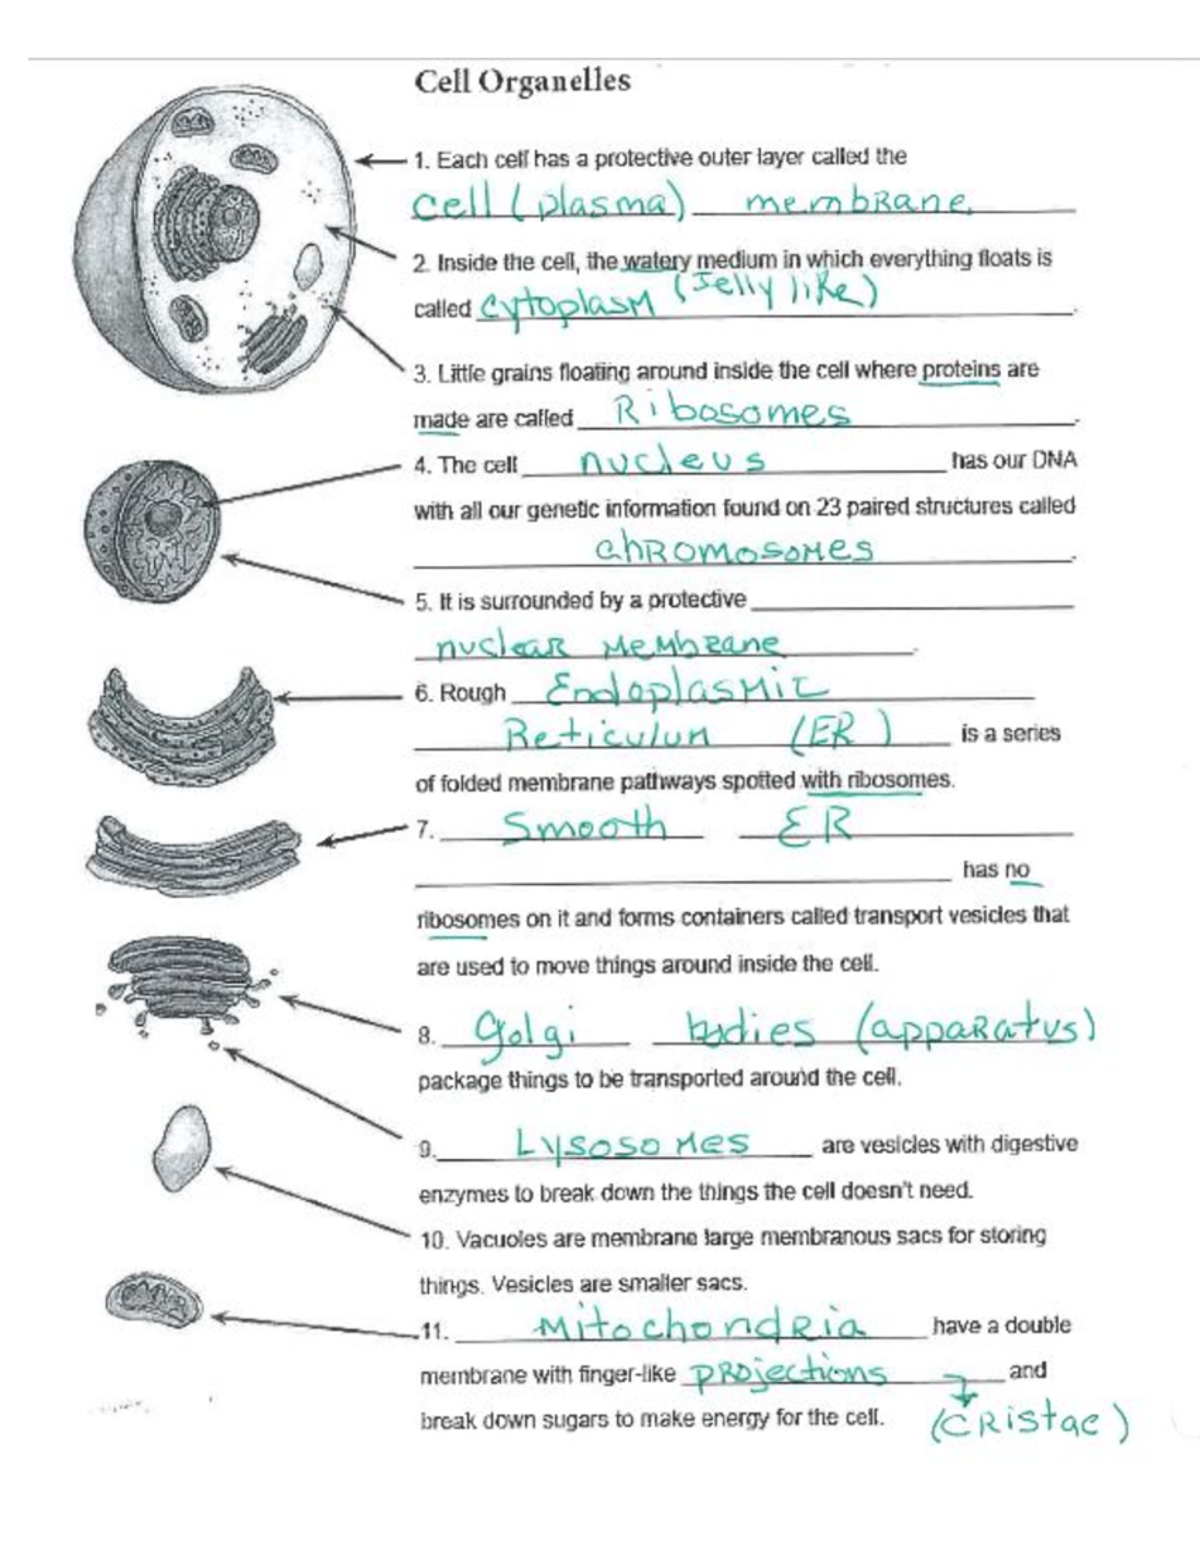 Cell Organelles
1. Each cell has a protective outer layer called the
cell (plasma) membrane
2. Inside the cell, the watery medium in which everything floats is
called cytoplasm (Jelly like)
3. Little grains floating around inside the cell where proteins are
made are called Ribosomes.
4. The cell nucleus has our DNA
with all our genetic information found on 23 paired structures called
chromosomes.
5. It is surrounded by a protective
nuclear membrane.
6. Rough Endoplasmic
Reticulum (ER) is a series
of folded membrane pathways spotted with ribosomes.
7. Smooth ER
has no
ribosomes on it and forms containers called transport vesicles that
are used to move things around inside the cell.
8. Golgi bodies (apparatus)
package things to be transported around the cell.
9. Lysosomes are vesicles with digestive
enzymes to break down the things the cell doesn't need.
10. Vacuoles are membrane large membranous sacs for storing
things. Vesicles are smaller sacs.
11. Mitochondria have a double
membrane with finger-like projections and
break down sugars to make energy for the cell. (Cristae)